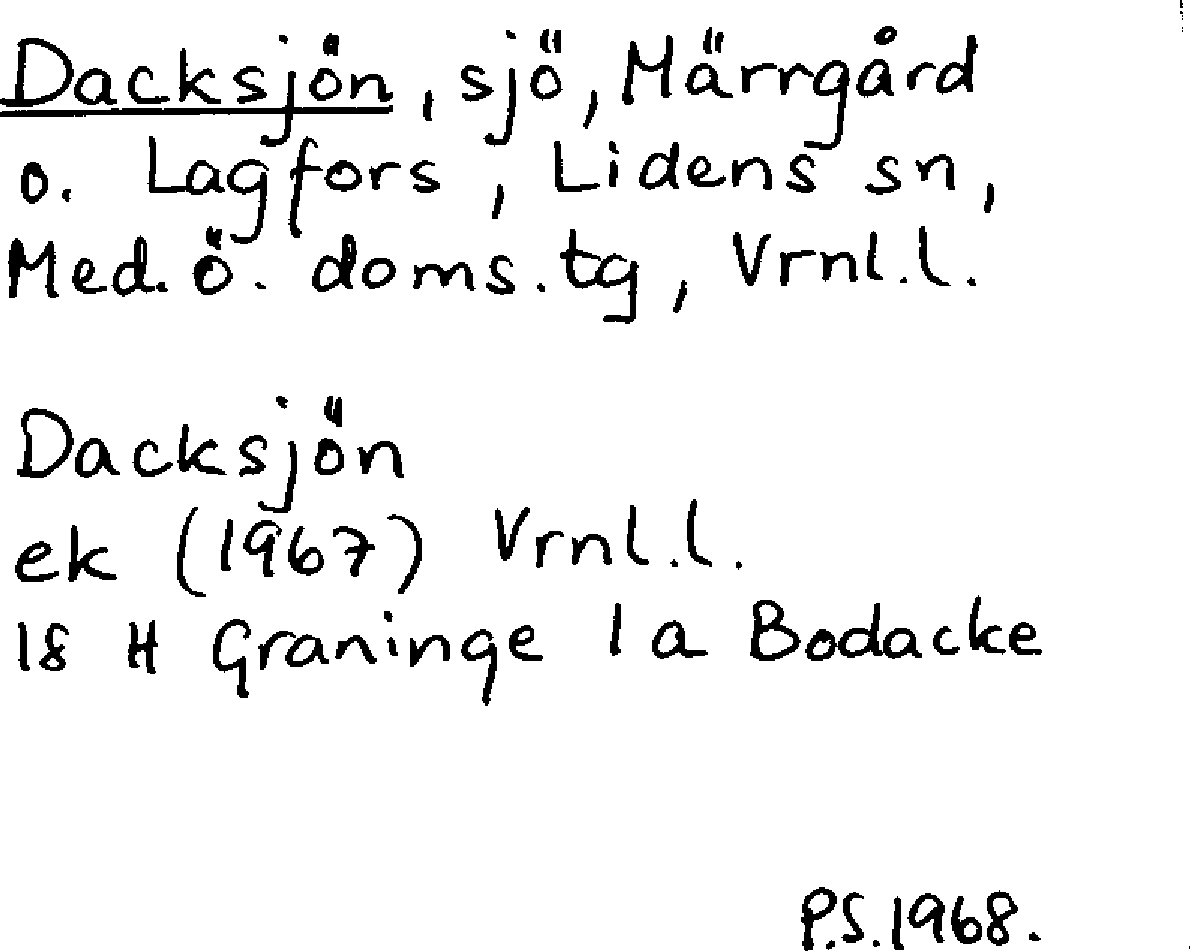 Dacksjön, sjö, Märrgård
o. Lagfors, Lidens sn,
Med. ö. doms.tg, Vrnl.l.
Dacksjön
ek (1967) Vrnl.l.
18 H Graninge 1 a Bodacke
P.S.1968.